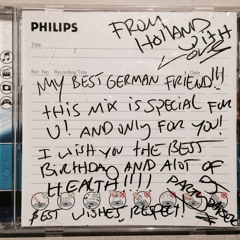 PHILIPS
FROM
HOLLAND
WITH
LOVE
Title
Rec. No. Recording Title
Notes
MY BEST GERMAN FRIEND!!!
THIS MIX IS SPECIAL FOR
U! AND ONLY FOR YOU!
I WISH YOU THE BEST
BIRTHDAY AND ALOT OF
HEALTH!!!!
BEST WISHES, RESPECT!